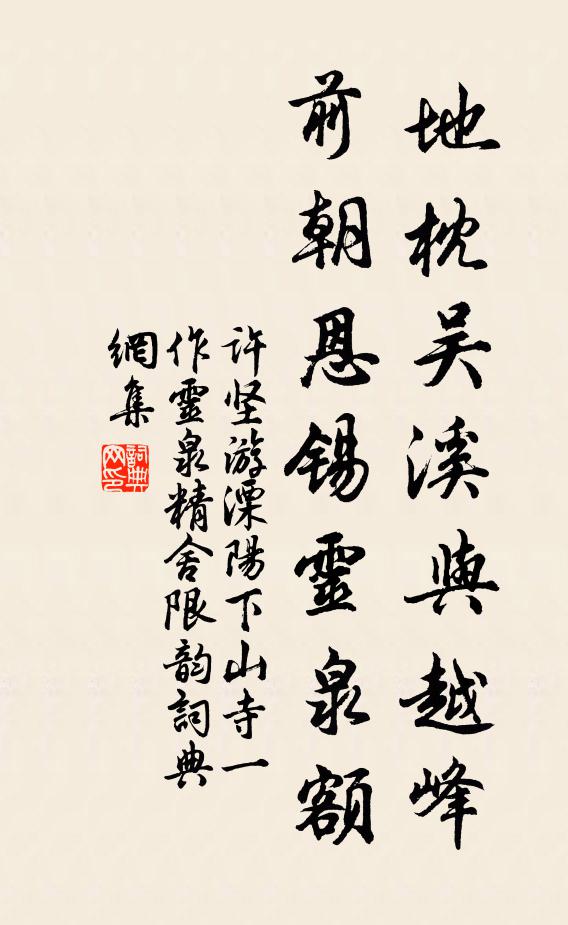 地枕吴溪與越峰
前朝恩锡靈泉額
许坚游溧陽下山寺一
作靈泉精舍限韵詞典
網集
詞典網印